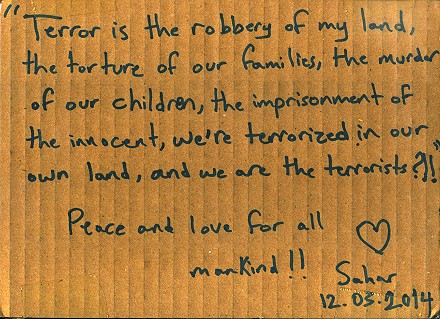 "Terror is the robbery of my land,
the torture of our families, the murder
of our children, the imprisonment of
the innocent, we're terrorized in our
own land, and we are the terrorists?!!"
Peace and love for all
mankind!!
Sahar
12.03.2014